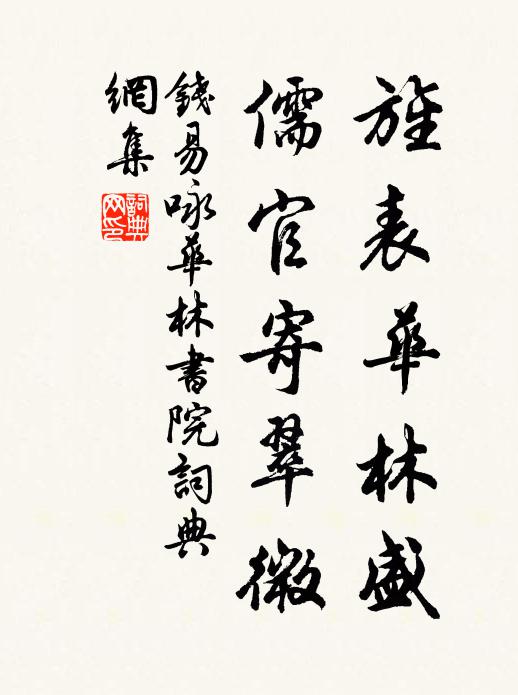 旌表華林盛
儒官寄翠微
錢易咏華林書院詞典
網集
詞典
网印